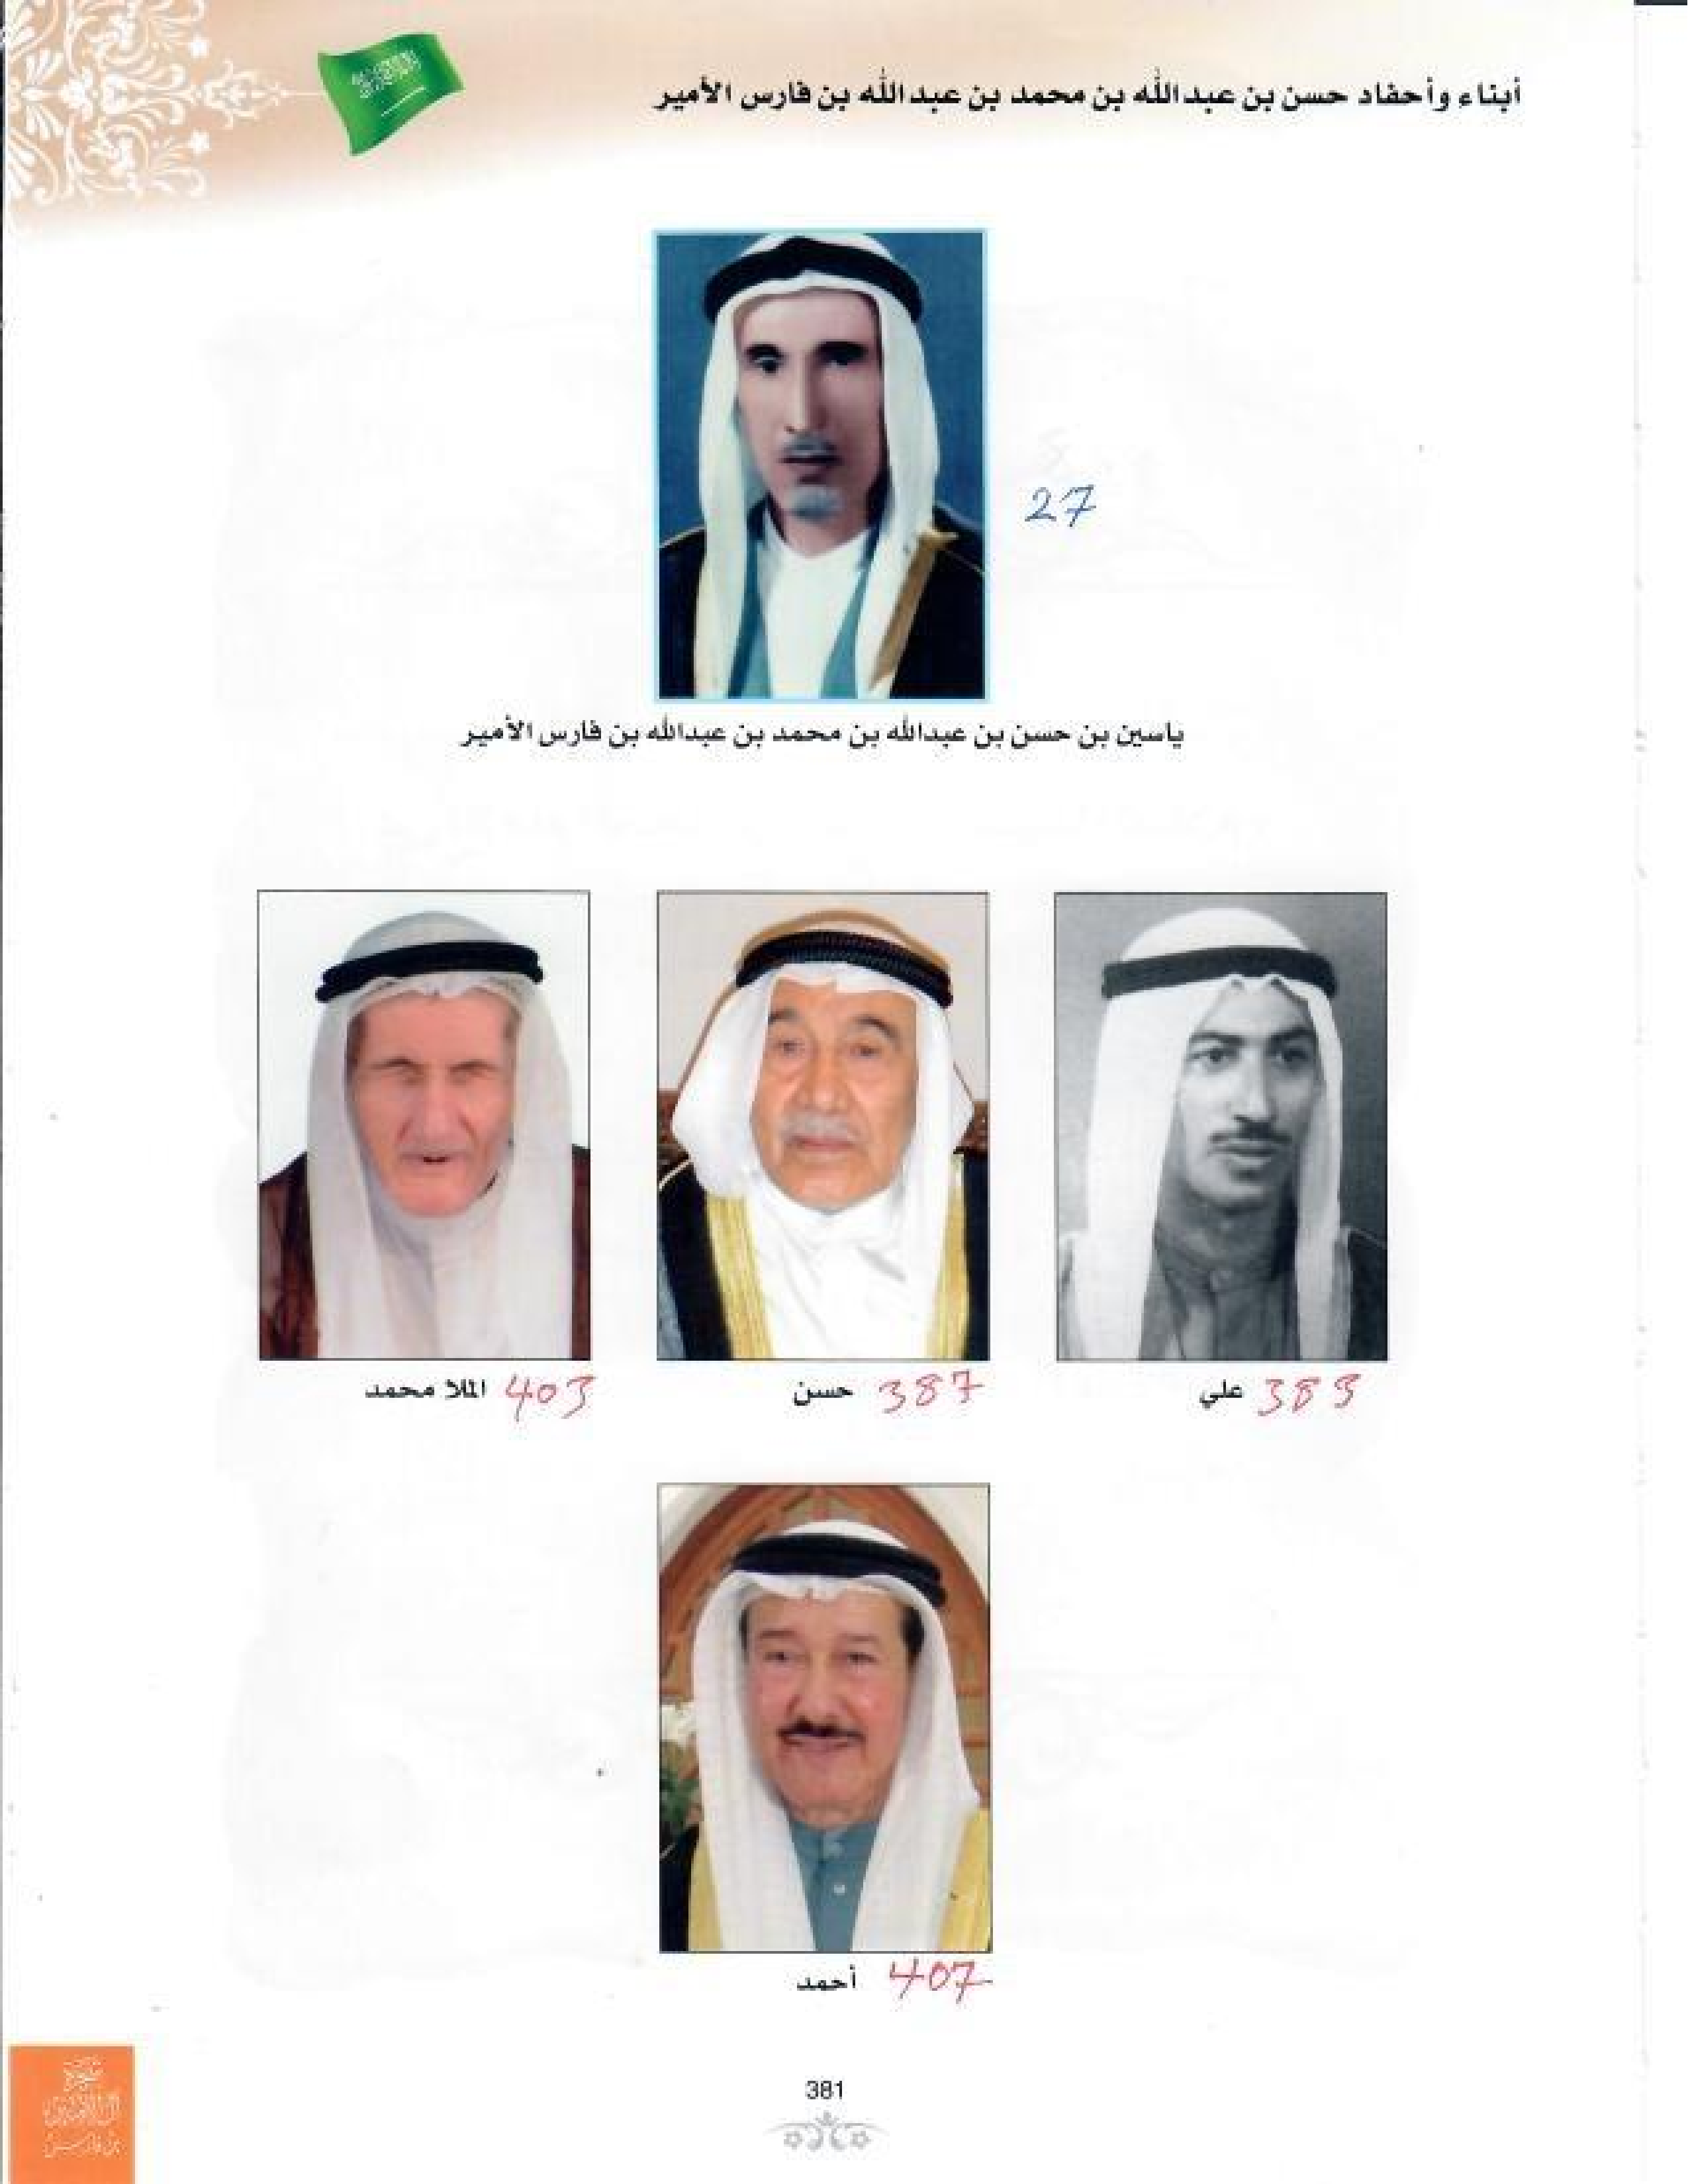 أبناء وأحفاد حسن بن عبدالله بن محمد بن عبدالله بن فارس الأمير
27
ياسين بن حسن بن عبدالله بن محمد بن عبدالله بن فارس الأمير
علي 383
حسن 387
الملا محمد 403
أحمد 407
381
شجرة
بن فارس